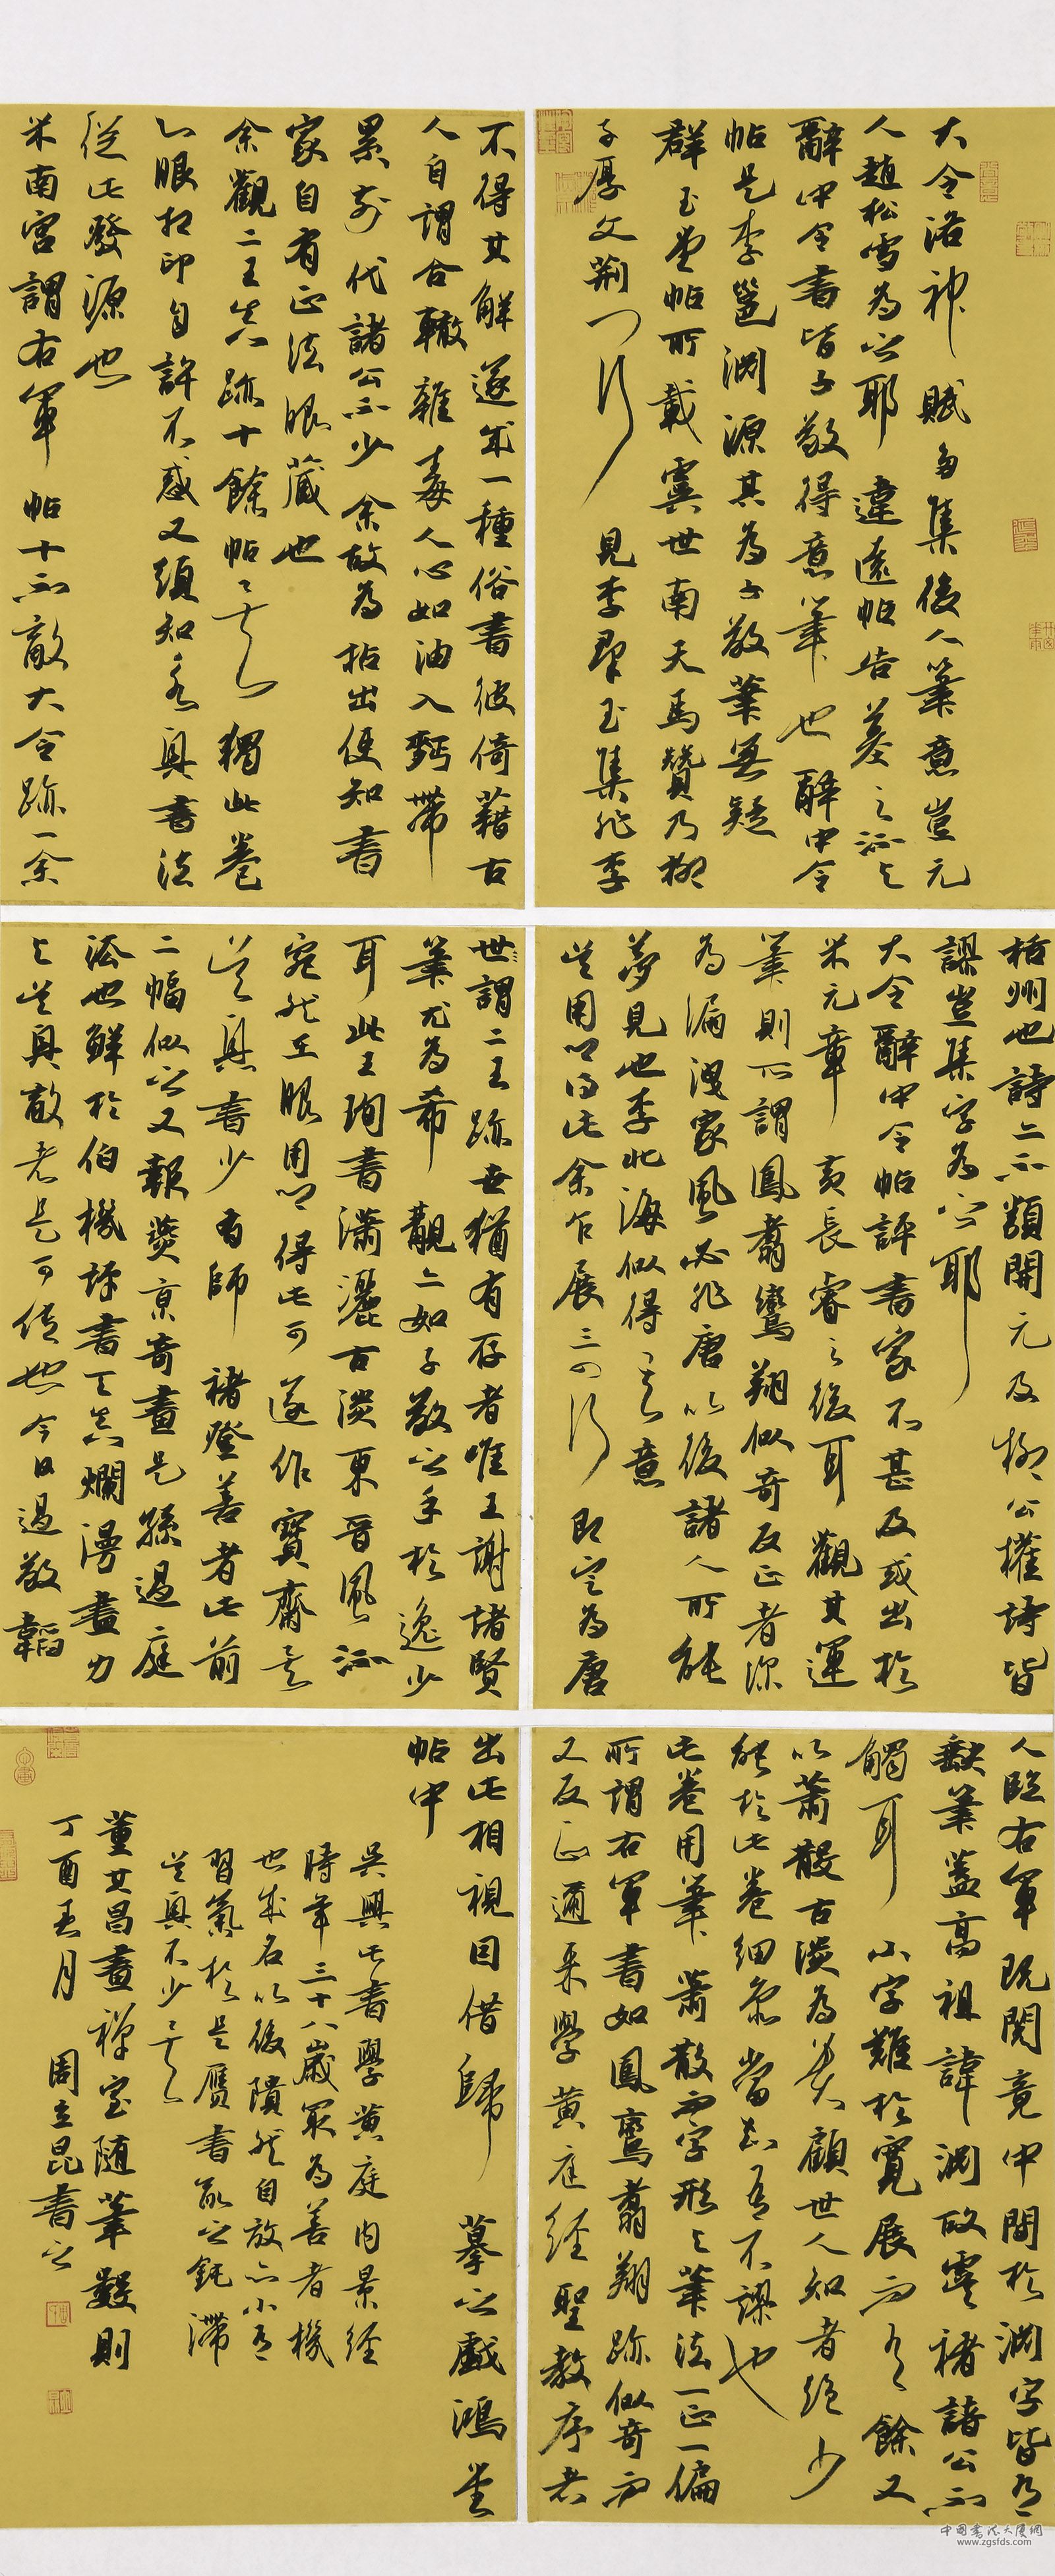 大令洛神賦多集後人筆意豈元
人趙松雪為之耶違遠帖告墓之流與
辭中令書皆子敬得意筆也辭中令
帖是李邕淵源其為子敬筆無疑
群玉堂帖所載虞世南天馬贊乃柳
子厚文荊門行見李群玉集非李
栝州也詩亦不類開元及柳公權詩皆
謬豈集字為之耶
大令辭中令帖評書家不甚及或出於
米元章黃長睿之後耳觀其運
筆則所謂鳳翥鸞翔似奇反正者深
為漏洩家風必非唐以後諸人所能
夢見也李北海似得其意
用筆得此余乍展三四行即定為唐
人臨右軍既閱竟中間於淵字皆有
缺筆蓋高祖諱淵故虞褚諸公不
觸耳小字難於寬展而有餘又
以蕭散古淡為貴顧世人知者絕少
能於此卷細參當知吾不謬也
此卷用筆蕭散而字形與筆法一正一偏
所謂右軍書如鳳鸞翥翔跡似奇而
又反正邇來學黃庭經聖教序者
不得其解遂成一種俗書彼倚藉古
人自謂合轍雜毒人心如油入麵帶
累前代諸公不少余故為拈出使知書
家自有正法眼藏也
余觀二王真跡十餘帖獨此卷
心眼相印自許不惑又須知永興書法
從此發源也
米南宮謂右軍帖十不敵大令跡一余
世謂二王跡世猶有存者唯王謝諸賢
筆尤為希覯亦如子敬之手於逸少
耳此王珣書瀟灑古淡東晉風流
宛然在眼用筆得此可遂作寶齋矣
真書少有師褚登善者此前
二幅似之又報燹京奇畫是孫過庭
法也鮮於伯機好書工真爛漫盡力
與吳興敵老是可傳也今日過敬韜
出此相視因借歸摹之戲鴻堂
帖中
吳興此書學黃庭內景經
時年三十八歲最為善者機
也成名以後隤然自放亦小有
習氣於是贗書能之鈍滯
吳興不少矣
董其昌畫禪室隨筆數則
丁酉春月周立昆書之
中國書法大廈網
www.zgsfds.com